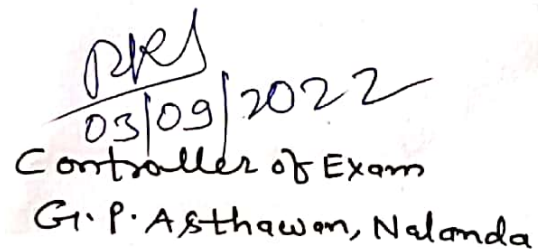 RKS
03/09/2022
Controller of Exam
G.P. Asthawan, Nalanda